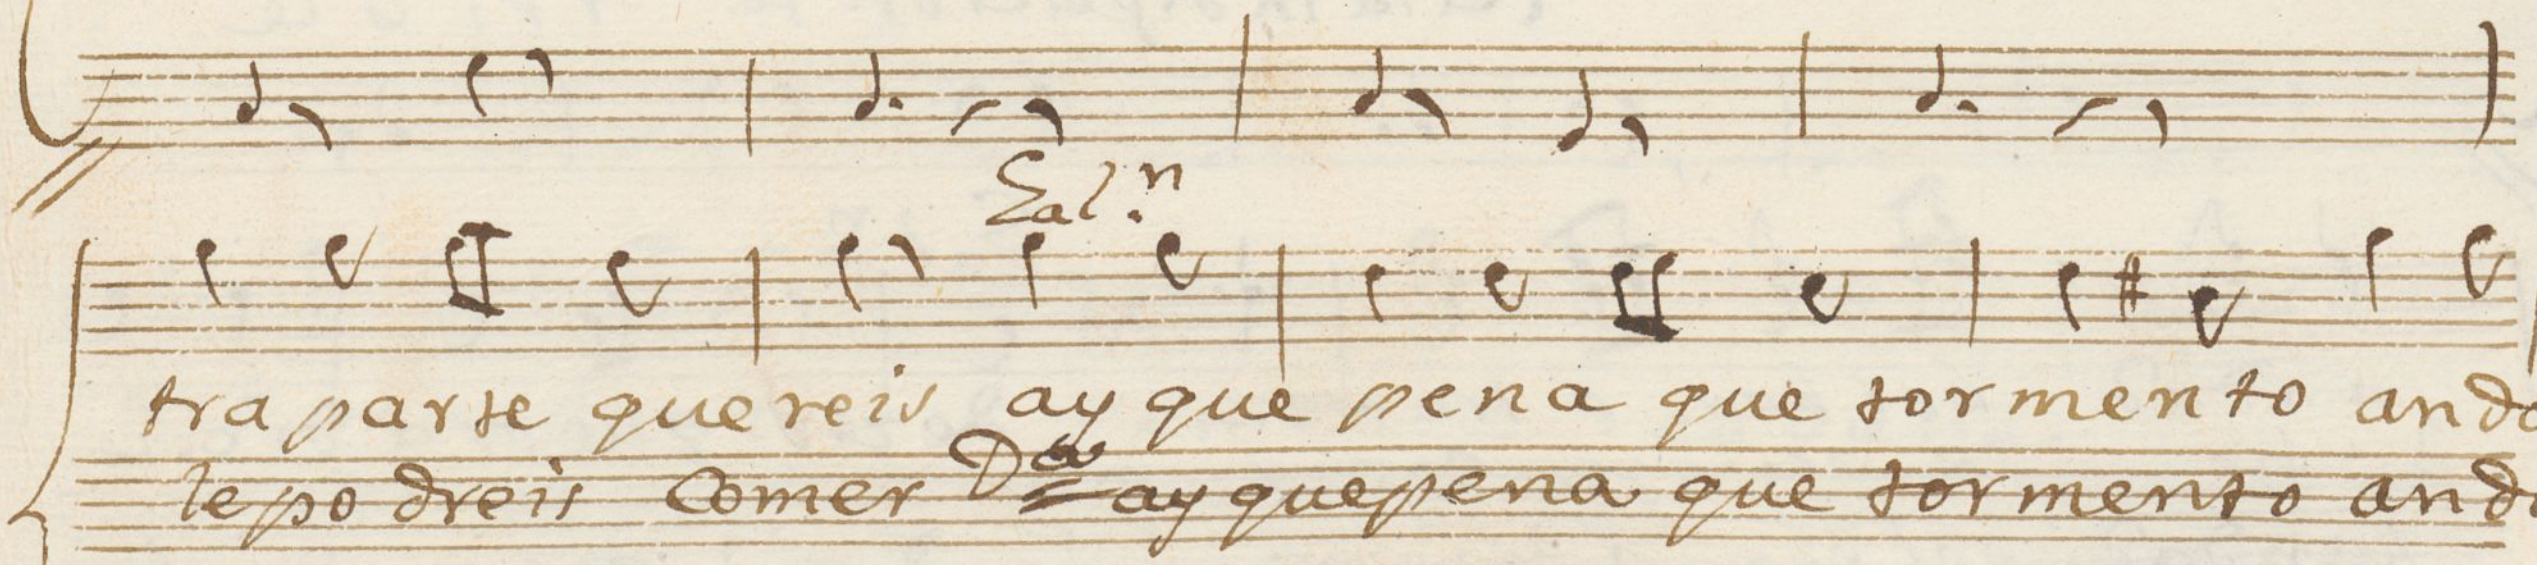 Gal.n
tra parte que reis ay que pena que tor men to an do
le po dreis Comer D.a ay que pena que tor men to an do